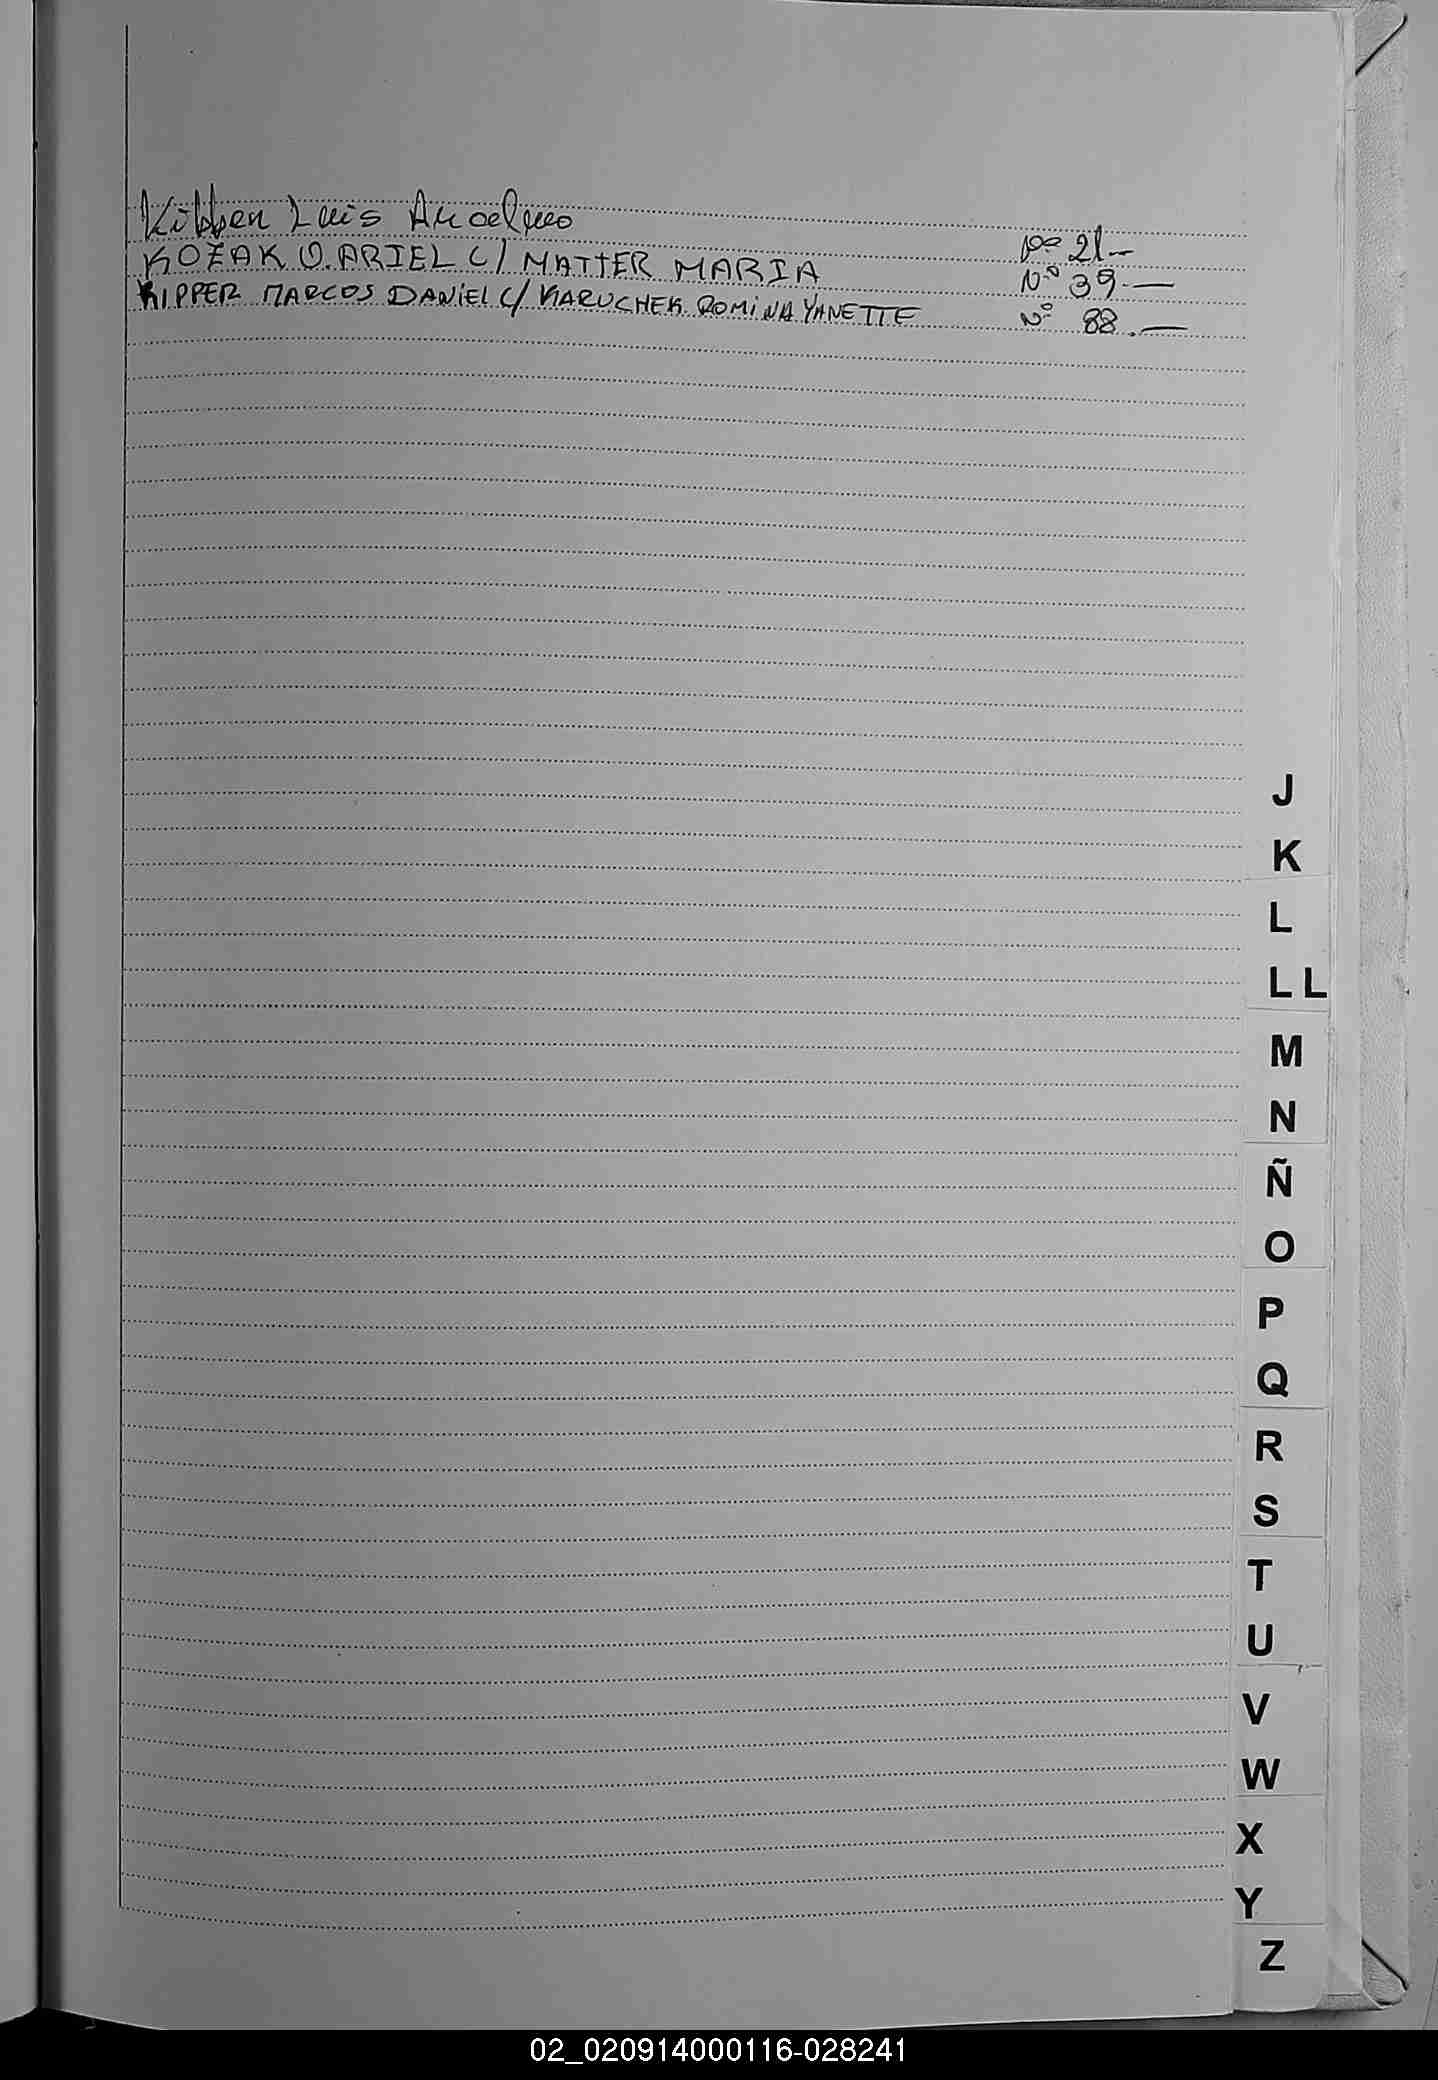 Luis
Nº 21-
KOZAK O. ARIEL C/ MATTER MARIA Nº 39.-
KIPPER MARCOS DANIEL C/ KARUCHEK ROMINA YANETTE Nº 88.-
J
K
L
LL
M
N
Ñ
O
P
Q
R
S
T
U
V
W
X
Y
Z
02_020914000116-028241